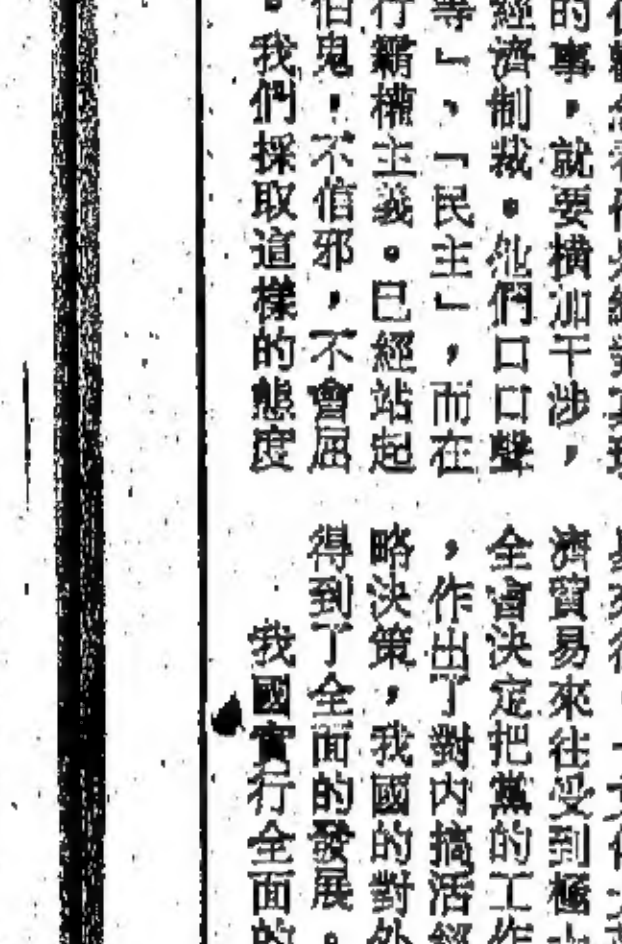 的事，就要橫加干涉，
經濟制裁。他們口口聲
等」，「民主」，而在
行霸權主義。已經站起
怕鬼，不信邪，不會屈
。我們採取這樣的態度
濟貿易來往受到極
全會決定把黨的工作
，作出了對內搞活經
略決策，我國的對外
得到了全面的發展。
我國實行全面的